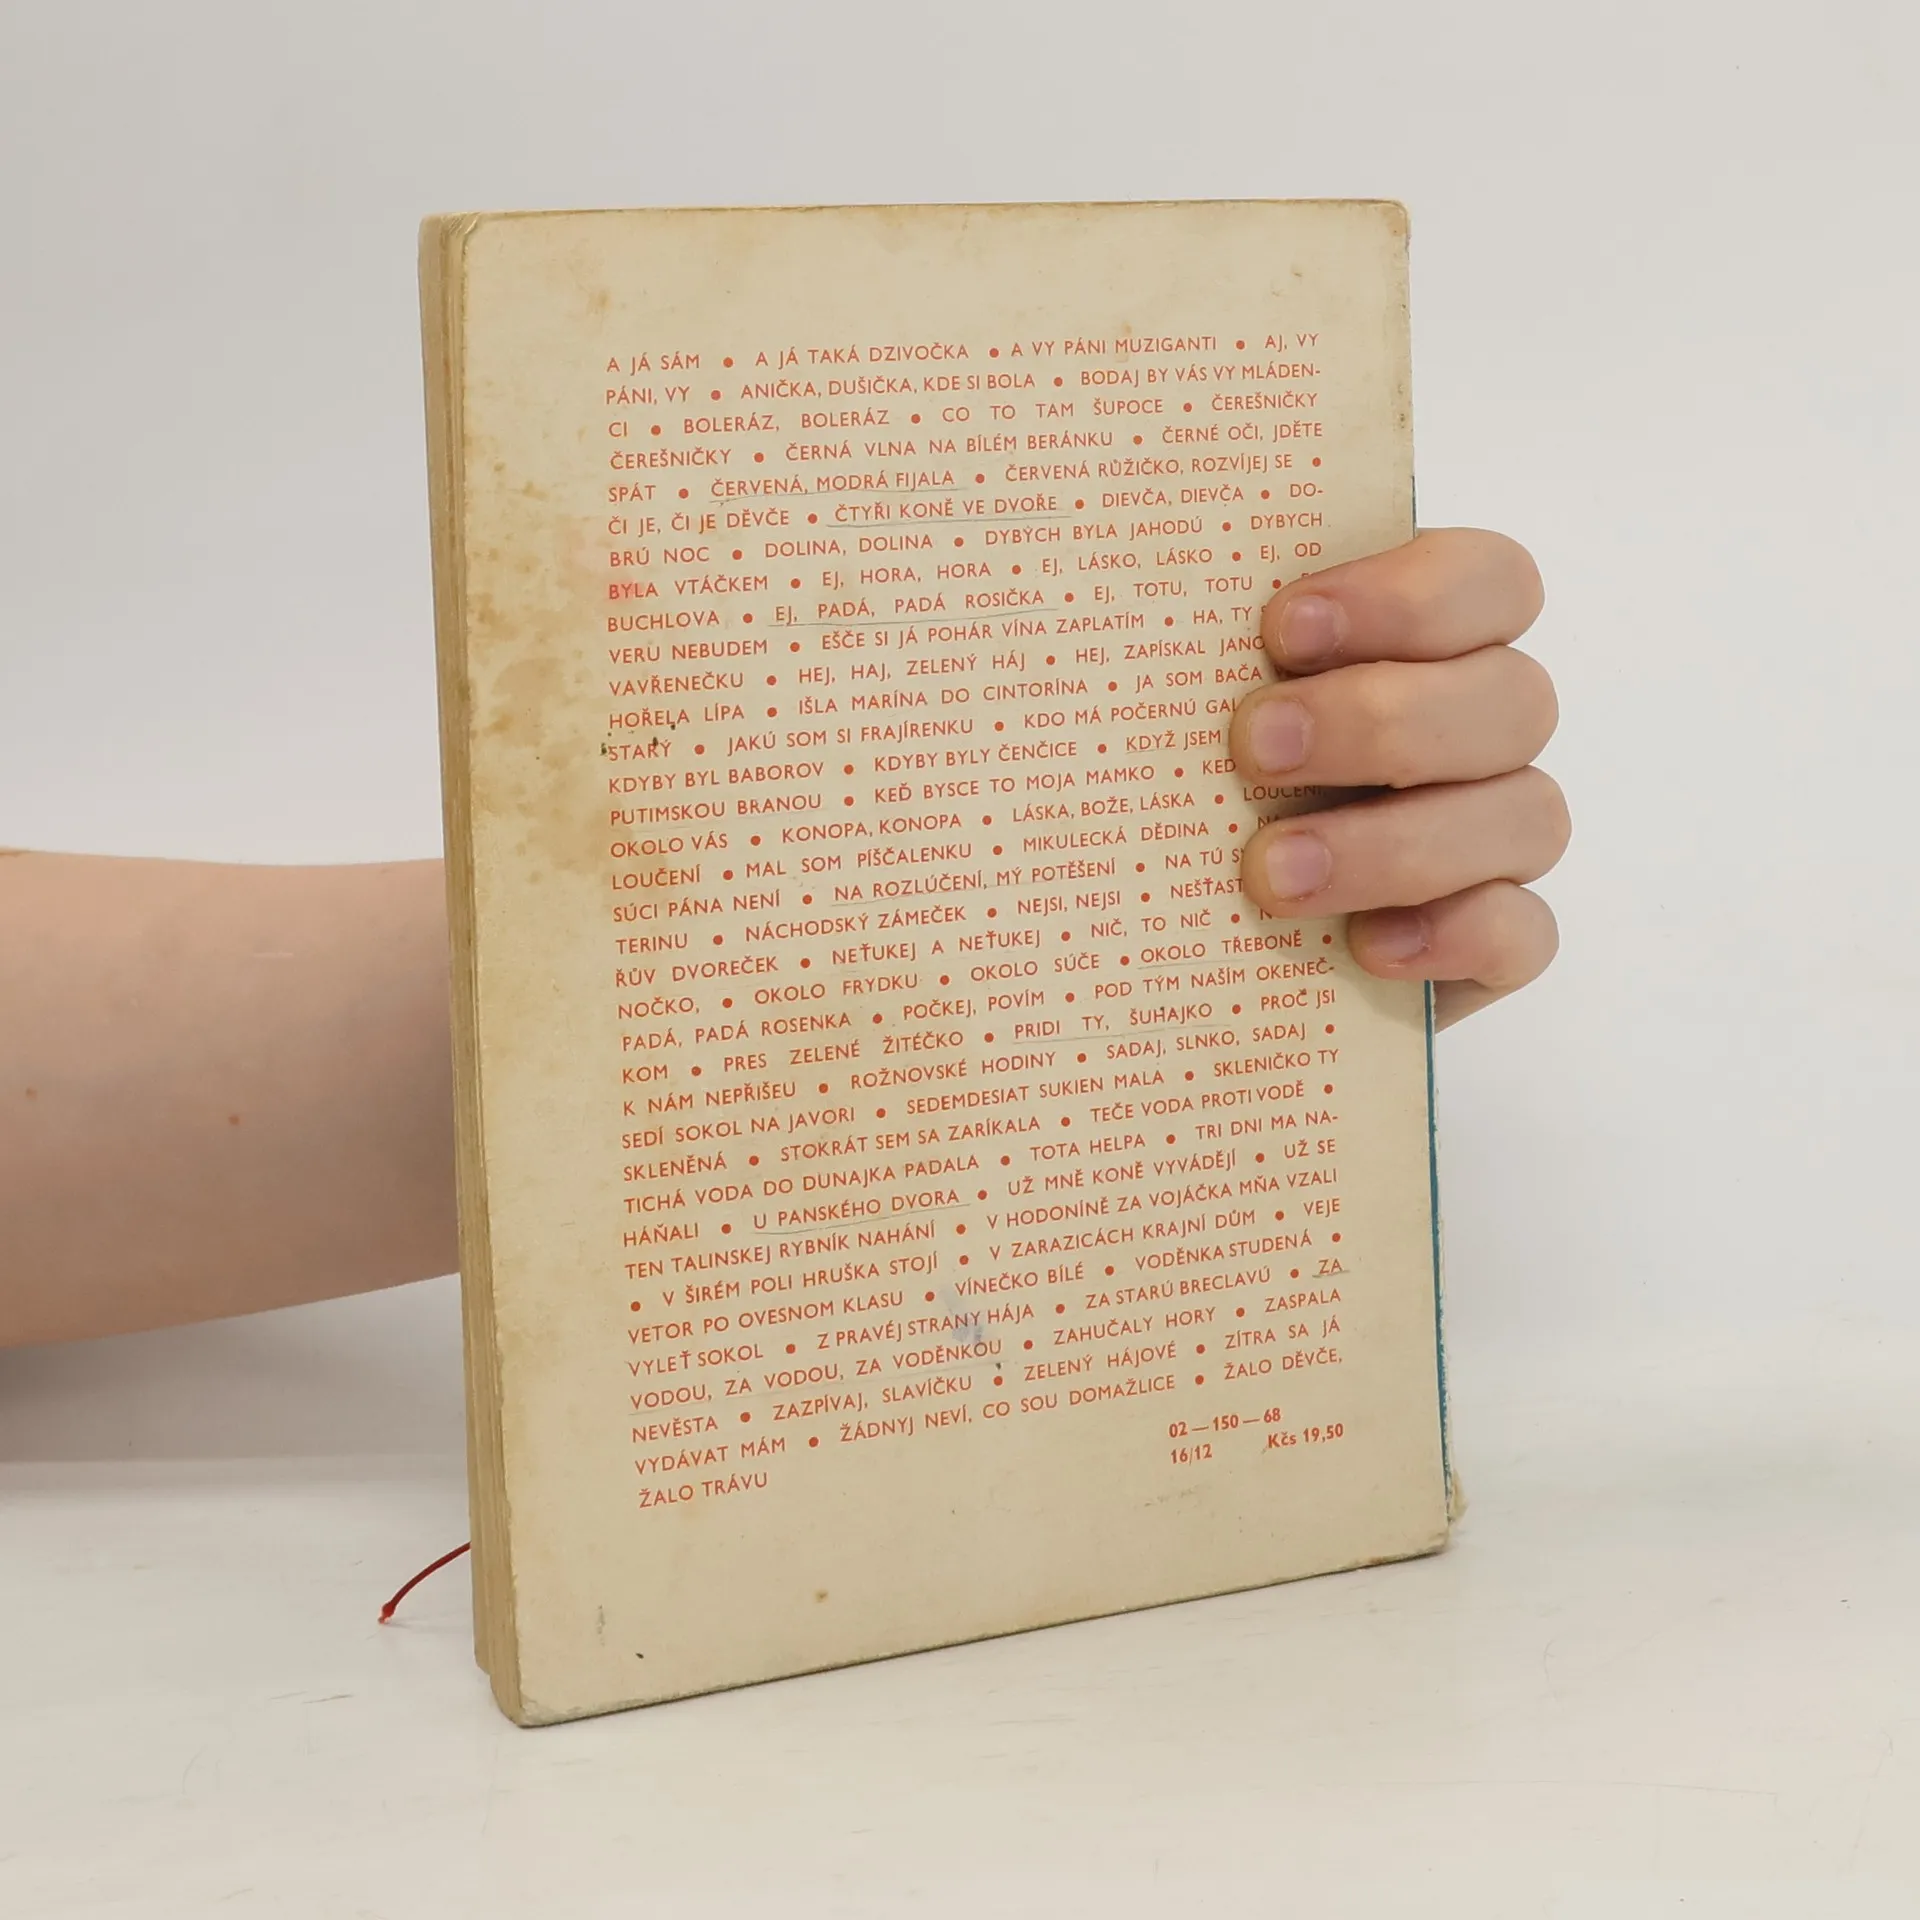 A JÁ SÁM • A JÁ TAKÁ DZIVOČKA • A VY PÁNI MUZIGANTI • AJ, VY
PÁNI, VY • ANIČKA, DUŠIČKA, KDE SI BOLA • BODAJ BY VÁS VY MLÁDEN-
CI • BOLERÁZ, BOLERÁZ • CO TO TAM ŠUPOCE • ČEREŠNIČKY
ČEREŠNIČKY • ČERNÁ VLNA NA BÍLÉM BERÁNKU • ČERNÉ OČI, JDĚTE
SPÁT • ČERVENÁ, MODRÁ FIJALA • ČERVENÁ RŮŽIČKO, ROZVÍJEJ SE •
ČI JE, ČI JE DĚVČE • ČTYŘI KONĚ VE DVOŘE • DIEVČA, DIEVČA • DO-
BRÚ NOC • DOLINA, DOLINA • DYBYCH BYLA JAHODÚ • DYBYCH
BYLA VTÁČKEM • EJ, HORA, HORA • EJ, LÁSKO, LÁSKO • EJ, OD
BUCHLOVA • EJ, PADÁ, PADÁ ROSIČKA • EJ, TOTU, TOTU •
VERU NEBUDEM • EŠČE SI JÁ POHÁR VÍNA ZAPLATÍM • HA, TY
VAVŘENEČKU • HEJ, HAJ, ZELENÝ HÁJ • HEJ, ZAPÍSKAL
HOŘELA LÍPA • IŠLA MARÍNA DO CINTORÍNA • JA SOM BAČA
STARÝ • JAKÚ SOM SI FRAJÍRENKU • KDO MÁ POČERNÚ
KDYBY BYL BABOROV • KDYBY BYLY ČENČICE • KDYŽ JSEM
PUTIMSKOU BRANOU • KEĎ BYSCE TO MOJA MAMKO •
OKOLO VÁS • KONOPA, KONOPA • LÁSKA, BOŽE, LÁSKA • LOUČENÍ,
LOUČENÍ • MAL SOM PÍŠČALENKU • MIKULECKÁ DĚDINA •
SÚCI PÁNA NENÍ • NA ROZLÚČENÍ, MÝ POTĚŠENÍ • NA TÚ
TERINU • NÁCHODSKÝ ZÁMEČEK • NEJSI, NEJSI •
ŘŮV DVOREČEK • NEŤUKEJ A NEŤUKEJ • NIČ, TO NIČ •
NOČKO, • OKOLO FRYDKU • OKOLO SÚČE • OKOLO TŘEBONĚ •
PADÁ, PADÁ ROSENKA • POČKEJ, POVÍM • POD TÝM NAŠÍM OKENEČ-
KOM • PRES ZELENÉ ŽITÉČKO • PRIDI TY, ŠUHAJKO • PROČ JSI
K NÁM NEPŘIŠEU • ROŽNOVSKÉ HODINY • SADAJ, SLNKO, SADAJ •
SEDÍ SOKOL NA JAVORI • SEDEMDESIAT SUKIEN MALA • SKLENIČKO TY
SKLENĚNÁ • STOKRÁT SEM SA ZARÍKALA • TEČE VODA PROTI VODĚ •
TICHÁ VODA DO DUNAJKA PADALA • TOTA HELPA • TRI DNI MA NA-
HÁŇALI • U PANSKÉHO DVORA • UŽ MNĚ KONĚ VYVÁDĚJÍ • UŽ SE
TEN TALINSKEJ RYBNÍK NAHÁNÍ • V HODONÍNĚ ZA VOJÁČKA MŇA VZALI
• V ŠIRÉM POLI HRUŠKA STOJÍ • V ZARAZICÁCH KRAJNÍ DŮM • VEJE
VETOR PO OVESNOM KLASU • VÍNEČKO BÍLÉ • VODĚNKA STUDENÁ •
VYLEŤ SOKOL • Z PRAVÉJ STRANY HÁJA • ZA STARÚ BRECLAVÚ • ZA
VODOU, ZA VODOU, ZA VODĚNKOU • ZAHUČALY HORY • ZASPALA
NEVĚSTA • ZAZPÍVAJ, SLAVÍČKU • ZELENÝ HÁJOVÉ • ZÍTRA SA JÁ
VYDÁVAT MÁM • ŽÁDNYJ NEVÍ, CO SOU DOMAŽLICE • ŽALO DĚVČE,
ŽALO TRÁVU
02—150—68
16/12 Kčs 19,50